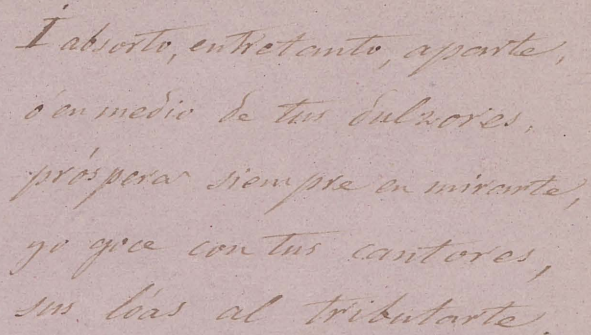 I absorto, entretanto, aparte,
ó en medio de tus dulzores,
próspera siempre en mirarte,
yo goce con tus cantores,
sus lóas al tributarte.